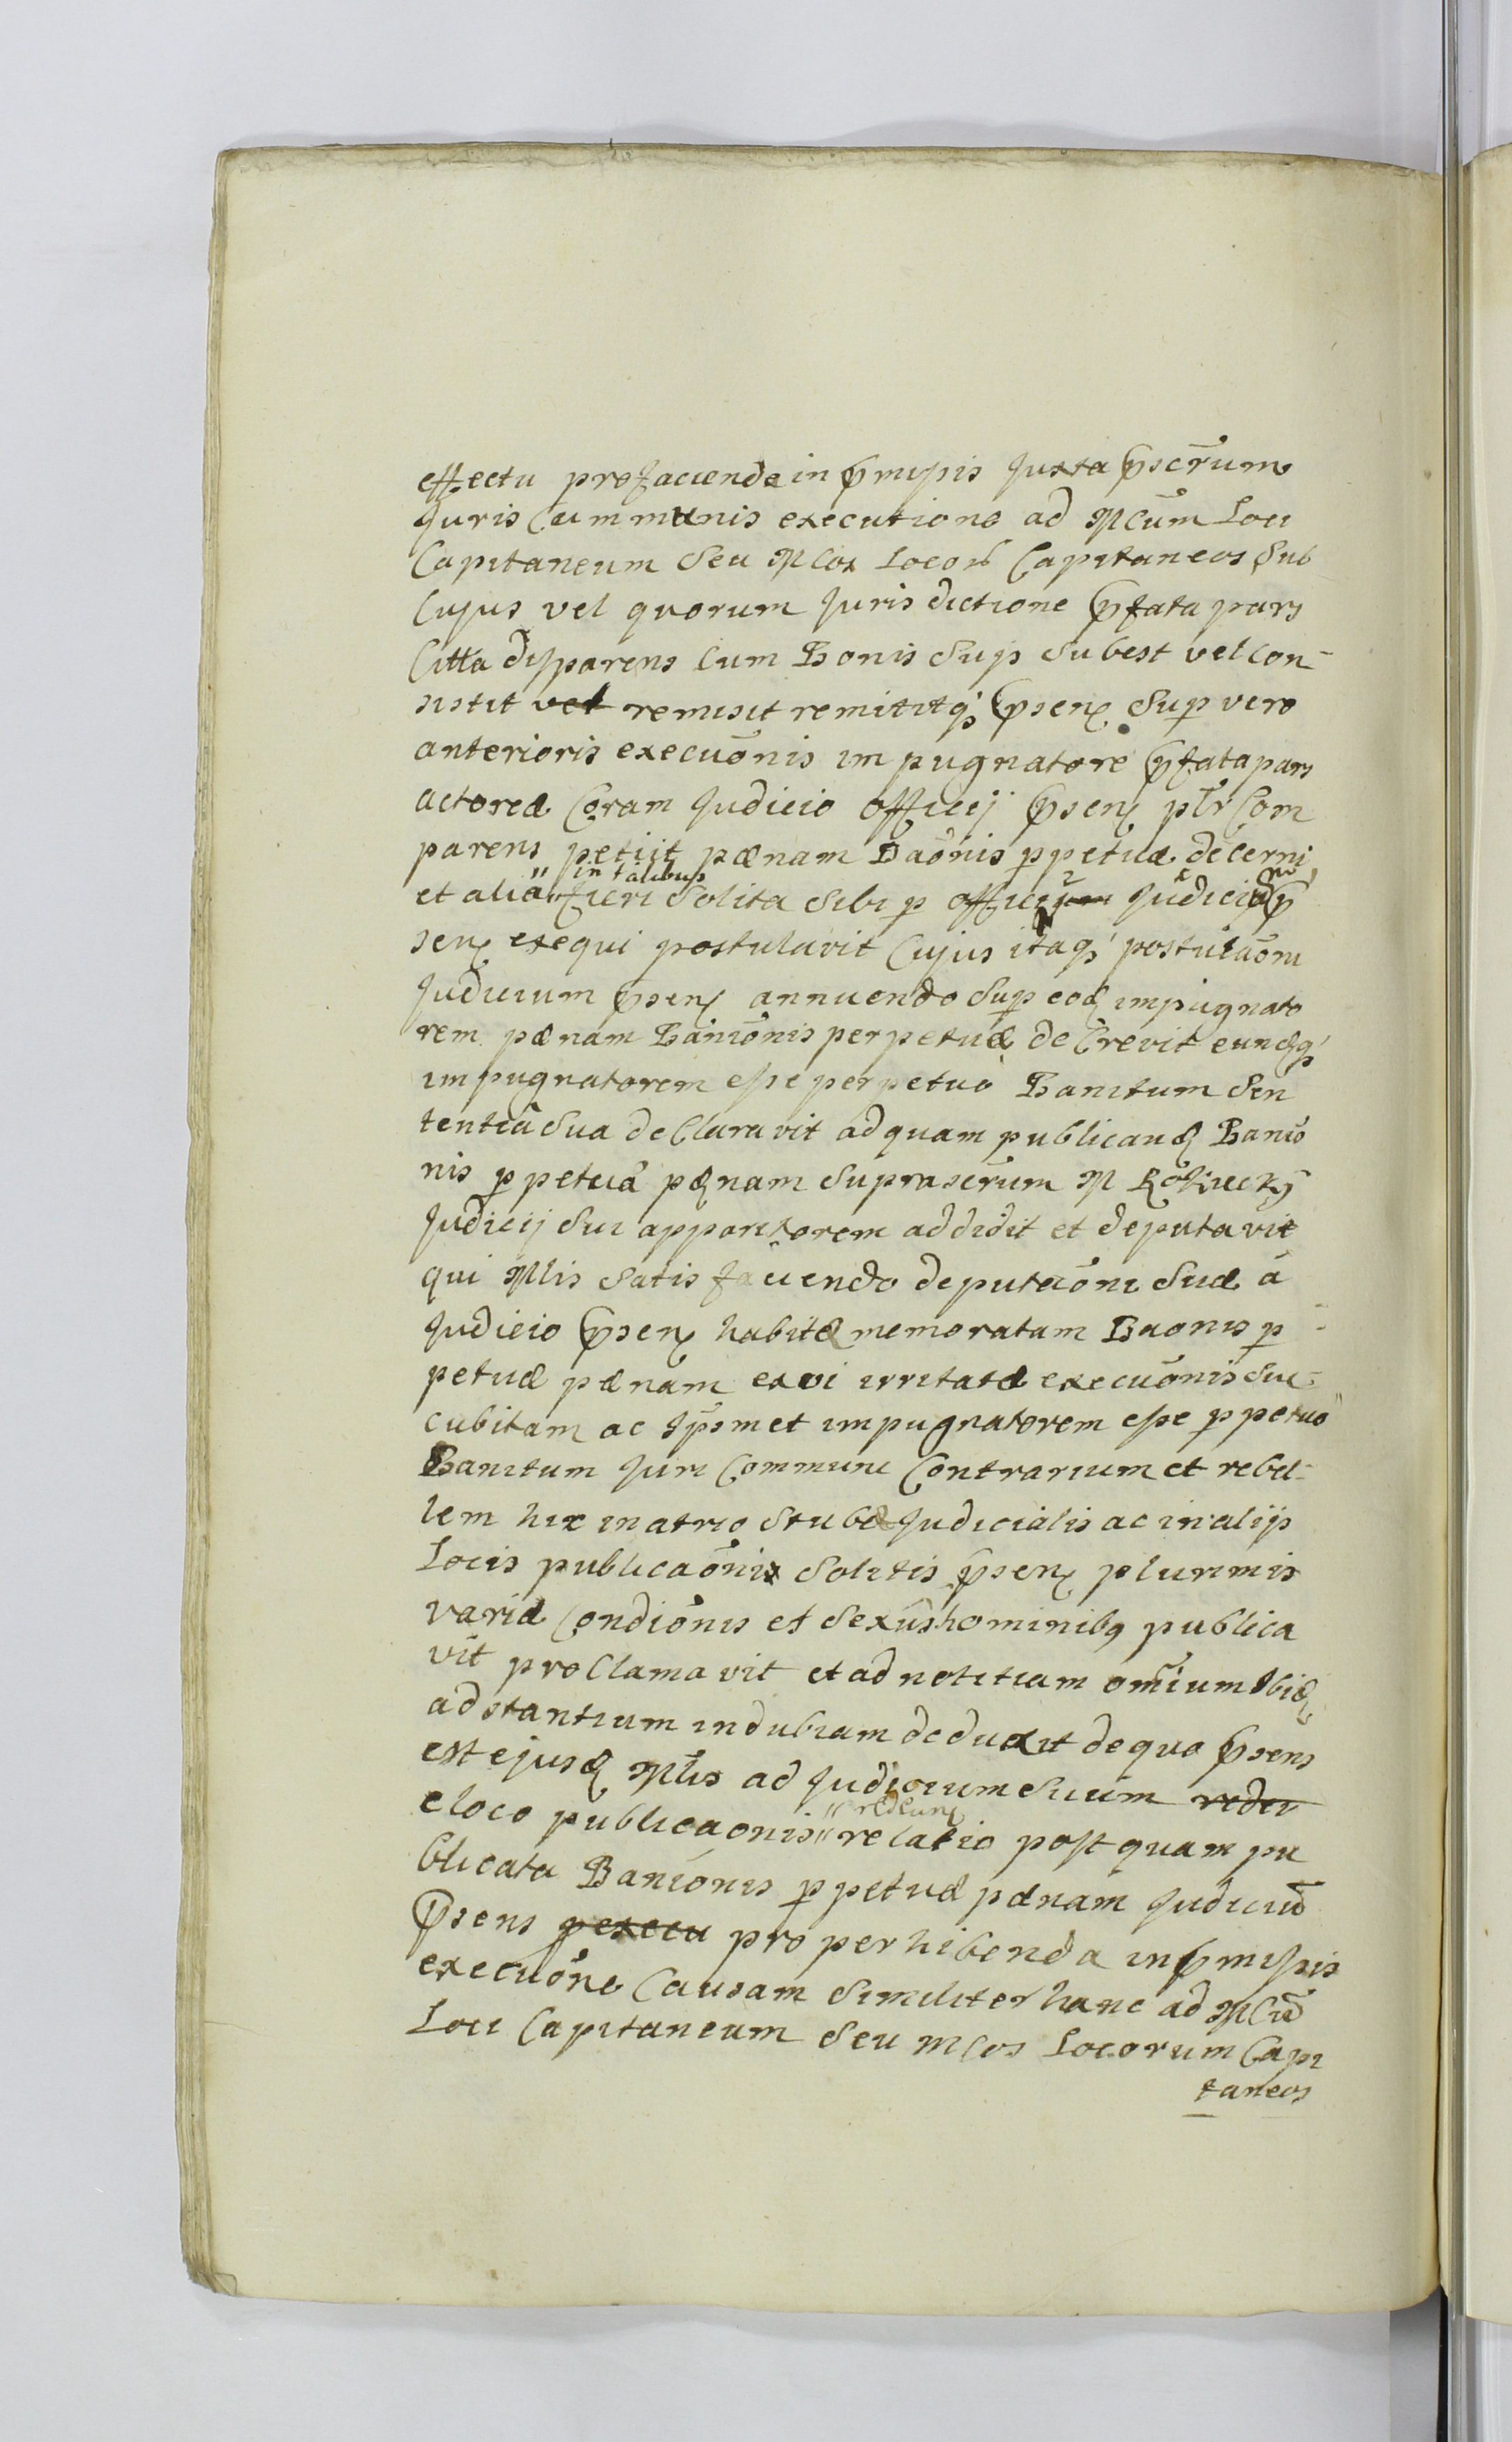 effectu pro facienda in p̄missis Juxta p̄scr̄um
Juris Communis executione ad Mcūm Loci
Capitaneum Seu Mcos Locorū Capitaneos Sub
Cujus vel quorum Jurisdictione p̄fata pars
Citta dispārens Cum Bonis Suis Subest vel con-
sistit vel remisit remititq; p̄sen. Sup vero
anteriōris execuōnis impugnatore p̄fata pars
actorea Coram Judicio Officij p̄sen. pltr Com
parens petiit pænam Baōnis ppetuæ decerni
et alia in talibus fieri Solita Sibi p officium Judiciū p̄
sen. exequi postulavit Cujus itaq; postulaōni
Judicium p̄sen. annuendo Sup eod. impugnato
rem pænam Baniōnis perpetuæ deCrevit eundq;
impugnatorem esse perpetuo Banitum Sen
tentia Sua deClaravit ad quam publicand. Baniō
nis ppetuæ pænam Suprascrūm M
Judicij Sui apparitorem addidit et deputavit
qui Mlis Satis faciendo deputaōni Suæ a
Judicio p̄sen. habitæ memoratam Baonis p
petuæ pænam ex vi irritatæ execuōnis Suc-
cubitam ac Ipsmet impugnatorem esse ppetuo
Banitum Juri Communi Contrarium et rebel-
lem hic in atrio Stubæ Judicialis ac in alijs
Locis publicaōnis Solitis p̄sen. plurimis
variæ Condiōnis et Sexus hominibq publica
vit proClamavit et ad notitiam omīum Ibid.
adstantium indubiam deduxit de quo p̄sens
est ejusd. Mlis ad Judicium Suum redei
e loco publicaonis redeun. relatio post quam pu
blicata Baniōnis ppetuæ pænam Judiciū
p̄sens p execu pro perhibenda in p̄missis
execuōne Causam Similiter hanc ad Mcū
Loci Capitaneum Seu Mcos Locorum Capi
taneos